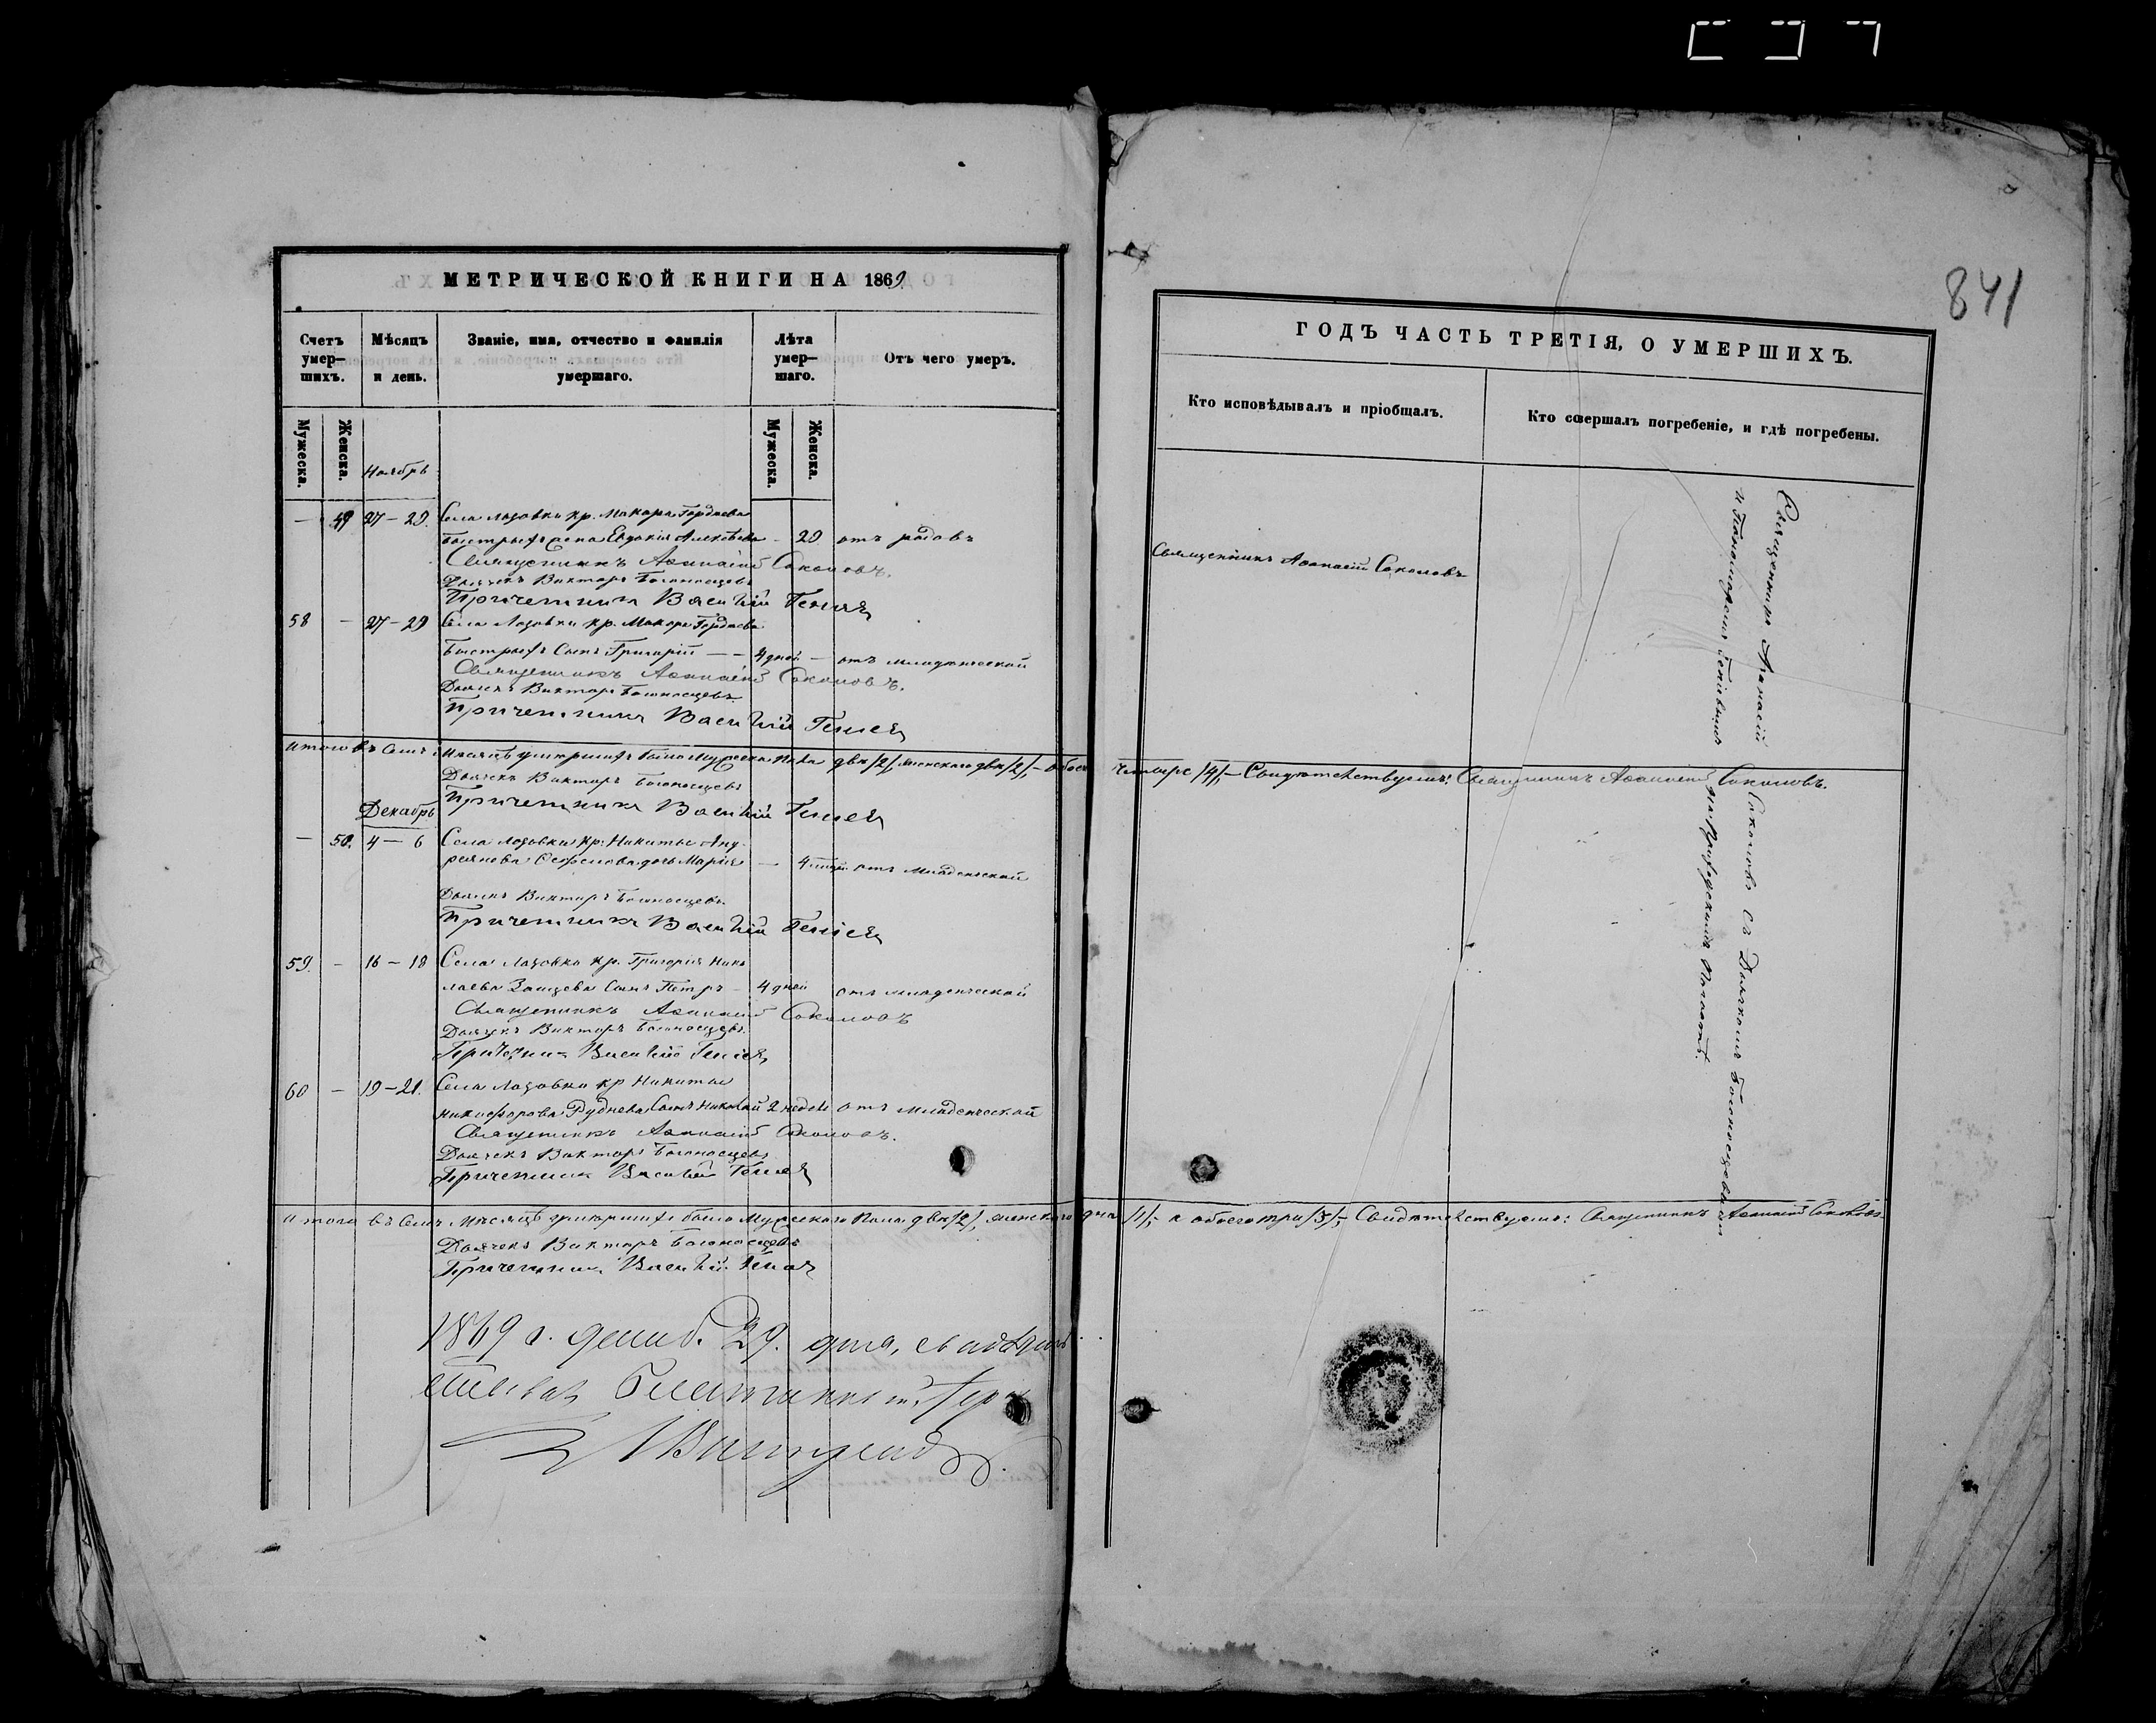 МЕТРИЧЕСКОЙ КНИГИ НА 1869
Счетъ умер–шихъ.
Мѣсяцъ и день.
Званіе, имя, отчество и фамилія умершаго.
Лѣта умер–шаго.
Отъ чего умеръ.
Мужеска.
Женска.
Мужеска.
Женска.
Ноябрь
— 49 27 – 29. Села Лозовки кр. Макара Гордѣева
Быстрыхъ жена Евдокія Алексѣева – 29 отъ родовъ
Священникъ Аѳанасій Соколовъ.
Дьячекъ Викторъ Богоносцевъ
Причетникъ Василій
58 – 27 – 29 Села Лозовки кр. Макара Гордѣева
Быстрыхъ Сынъ Григорій – – 4 дней – отъ младенческой
Священникъ Аѳанасій Соколовъ.
Дьячекъ Викторъ Богоносцевъ
Причетникъ Василій
Итого въ семъ Мѣсяцѣ умершихъ было мужеска пола два /2/, женскаго двѣ /2/, – обоего
Дьячекъ Викторъ Богоносцевъ
Причетникъ Василій
Декабрь
— 50. 4 – 6 Села Лозовки кр. Никиты Анд-
реянова дочь Марія — 4 отъ младенческой
Дьячекъ Викторъ Богоносцевъ
Причетникъ Василій
59. – 16 – 18 Села Лозовки кр. Григорія Нико-
лаева Зайцева Сынъ Петръ – 4 дней отъ младенческой
Священникъ Аѳанасій Соколовъ
Дьячекъ Викторъ Богоносцевъ
Василій
60 – 19 – 21. Села Лозовки кр Никиты
Никифорова Руднева Сынъ Николай 2 недели отъ младенческой
Священникъ Аѳанасій Соколовъ.
Дьячекъ Викторъ Богоносцевъ
Причетникъ Василій
Итого въ семъ Мѣсяцѣ умершихъ было Мужескаго Пола два /2/, женскаго одна
Дьячекъ Викторъ Богоносцевъ
Причетникъ Василій
1869 г. декаб. 29. дня, свидѣтель
841
ГОДЪ ЧАСТЬ ТРЕТІЯ, О УМЕРШИХЪ.
Кто исповѣдывалъ и пріобщалъ.
Кто совершалъ погребеніе, и гдѣ погребены.
Священникъ Аѳанасій Соколовъ
Священникъ Аѳанасій Соколовъ съ Дьячкомъ Богоносцевымъ
и Пономаремъ на Приходскомъ Погостѣ.
четыре /4/, – Свидѣтельствуемъ: Священникъ Аѳанасій Соколовъ.
/1/, а обоего три /3/, – Свидѣтельствуемъ: Священникъ Аѳанасій Соколовъ